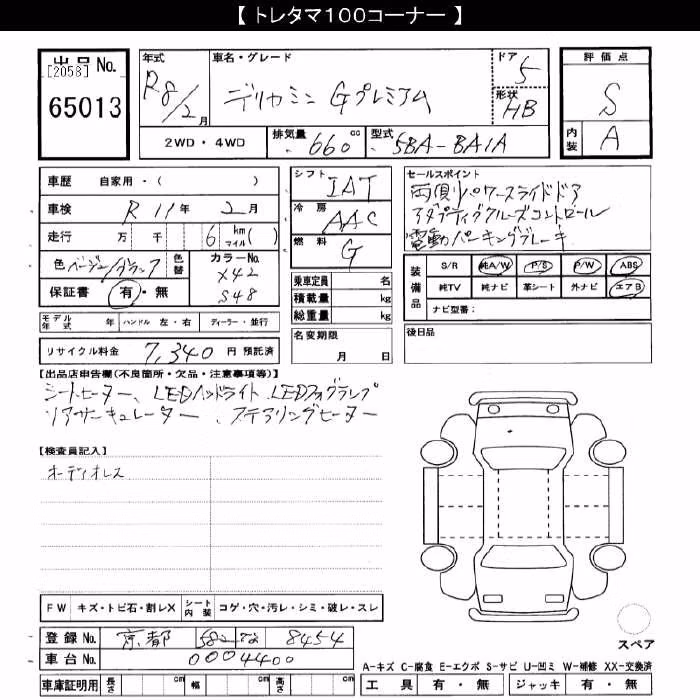 【 トレタマ100コーナー 】
出品 No.
[2058]
65013
年式
R8/2月
車名・グレード
デリカミニ Gプレミアム
ドア
5
形状
HB
評価点
S
内装
A
2WD・4WD
排気量
660 cc
型式
5BA-BA1A
車歴 自家用・( )
車検 R 11年 2月
走行 万 千 6 km マイル ( )
色 ベージュ/ブラック
色替
カラーNo.
X42
S48
保証書 有・無
シフト
IAT
冷房
AAC
燃料
G
乗車定員 名
積載量 kg
総重量 kg
名変期限
月 日
セールスポイント
両側パワースライドドア
アダプティブクルーズコントロール
電動パーキングブレーキ
装備品
S/R 純A/W P/S P/W ABS
純TV 純ナビ 革シート 外ナビ エアB
ナビ型番:
モデル年式 年 ハンドル 左・右 ディーラー・並行
リサイクル料金 7,340 円 預託済
後日品
【出品店申告欄(不良箇所・欠品・注意事項等)】
シートヒーター、LEDヘッドライト、LEDフォグランプ
リアサーキュレーター、ステアリングヒーター
【検査員記入】
オーディオレス
FW キズ・トビ石・割レX シート内装 コゲ・穴・汚レ・シミ・破レ・スレ
登録 No. 京都 582 8454
車台 No. 0004400
車庫証明用 長さ cm 幅 cm 高さ cm
スペア
A-キズ C-腐食 E-エクボ S-サビ U-凹ミ W-補修 XX-交換済
工具 有・無 ジャッキ 有・無